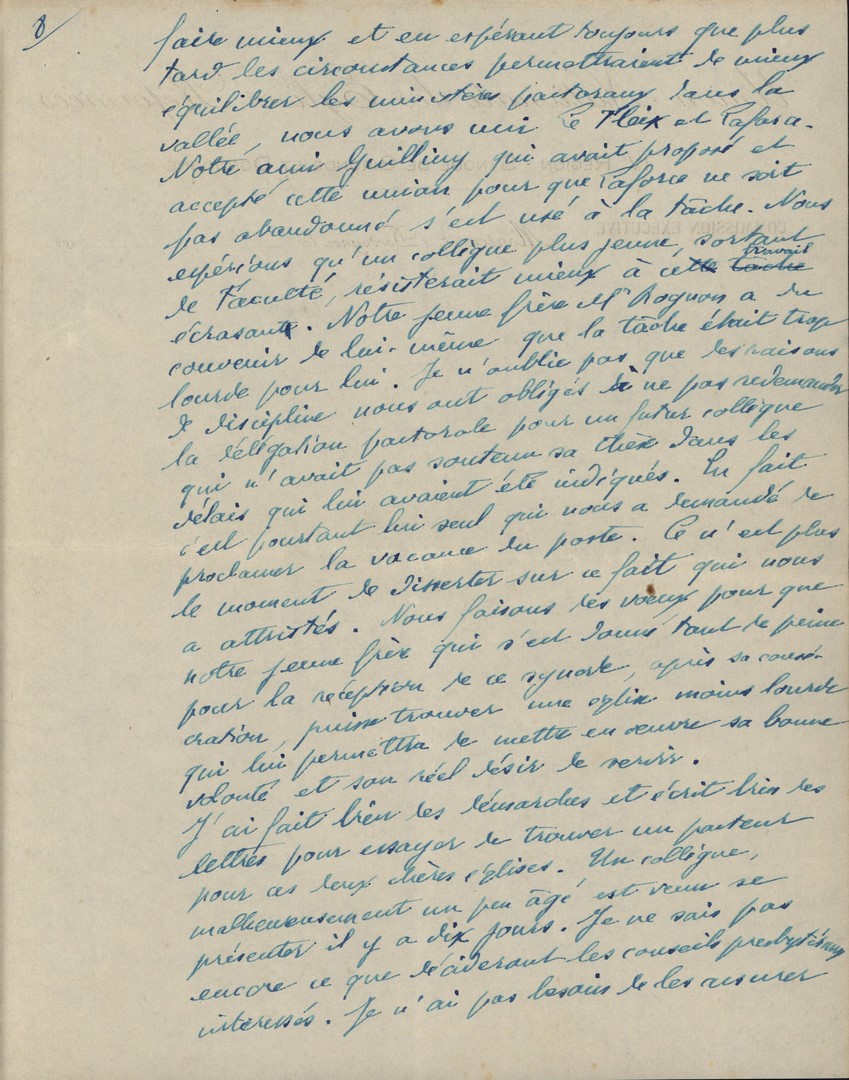 8/
faire mieux et en espérant toujours que plus
tard les circonstances permettraient de mieux
équilibrer les ministères pastoraux dans la
vallée, nous avons uni Le Fleix et Laforce.
Notre ami Guilliny qui avait proposé et
accepté cette union pour que Laforce ne soit
pas abandonné s'est usé à la tâche. Nous
espérions qu'un collègue plus jeune, sortant
de Faculté, résisterait mieux à cette tâche travail
écrasant. Notre jeune frère Mr Rognon a dû
convenir de lui-même que la tâche était trop
lourde pour lui. Je n'oublie pas que des raisons
de discipline nous ont obligés à ne pas redemander
la délégation pastorale pour un futur collègue
qui n'avait pas soutenu sa thèse dans les
délais qui lui avaient été indiqués. En fait
c'est pourtant lui seul qui nous a demandé de
proclamer la vacance du poste. Ce n'est plus
le moment de disserter sur ce fait qui nous
a attristés. Nous faisons des voeux pour que
notre jeune frère qui s'est donné tant de peine
pour la réception de ce synode, après sa consé-
cration, puisse trouver une église moins lourde
qui lui permettra de mettre en oeuvre sa bonne
volonté et son réel désir de servir.
J'ai fait bien des démarches et écrit bien des
lettres pour essayer de trouver un pasteur
pour ces deux chères églises. Un collègue,
malheureusement un peu âgé est venu se
présenter il y a dix jours. Je ne sais pas
encore ce que décideront les conseils presbytéraux
intéressés. Je n'ai pas besoin de les assurer